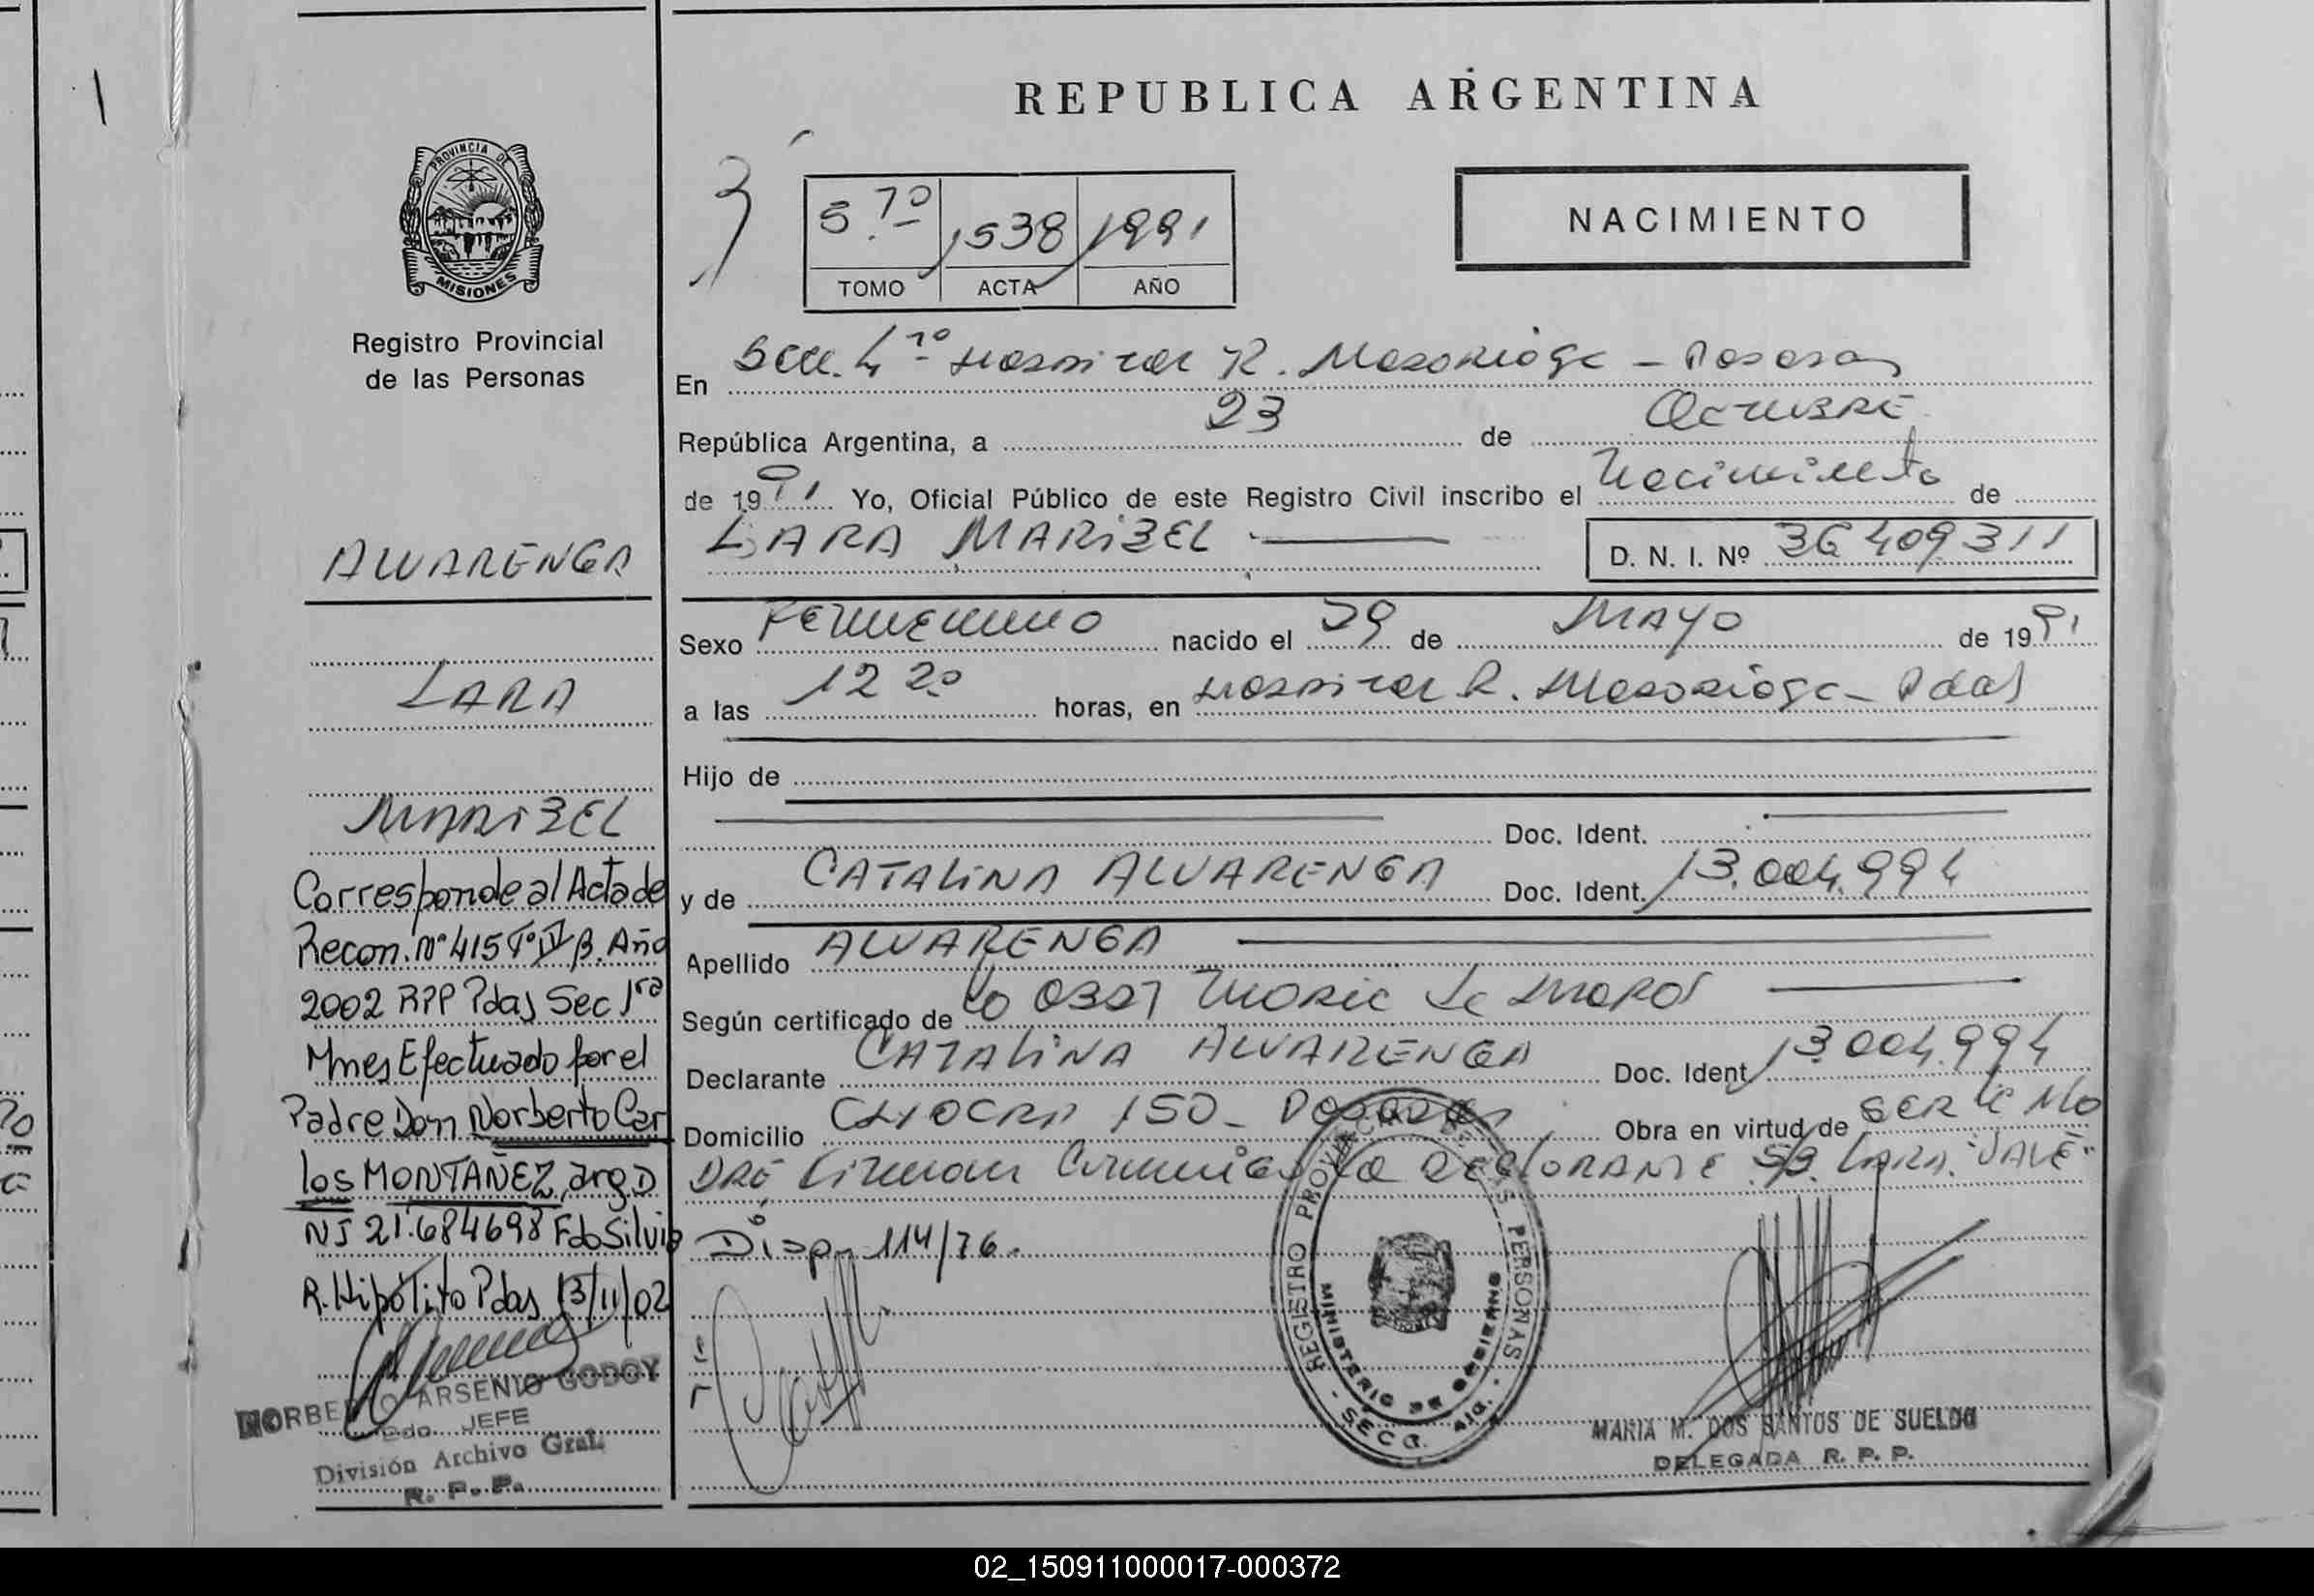 REPUBLICA ARGENTINA
PROVINCIA DE
MISIONES
Registro Provincial
de las Personas
5.to 1538 1991
TOMO ACTA AÑO
NACIMIENTO
En Secc. 4ta Hospital R. Madariaga - Posadas
República Argentina, a 23 de Octubre
de 1991 Yo, Oficial Público de este Registro Civil inscribo el Nacimiento de
LARA MARIBEL
D. N. I. Nº 36409311
Sexo Femenino nacido el 29 de Mayo de 1991
a las 12 20 horas, en Hospital R. Madariaga - Pdas
Hijo de
Doc. Ident.
y de CATALINA ALVARENGA Doc. Ident. 13.004.994
Apellido ALVARENGA
Según certificado de
Declarante CATALINA ALVARENGA Doc. Ident 13.004.994
Domicilio 150 - Posadas Obra en virtud de SER la MA
DRE DECLARANTE S/B. LARA. "VALE"
Disp. 114/76.
ALVARENGA
LARA
MARIBEL
Corresponde al Acta de
Recon. Nº 415 Tº IV B. Año
2002 RPP Pdas Sec 1ra
Mnes Efectuado por el
Padre Don Norberto Car
los MONTAÑEZ, arg. D
NI 21.684698 Fdo Silvia
R. Hipólito Pdas 13/11/02
NORBERTO ARSENIO GODOY
2do. JEFE
División Archivo Gral.
R. P. P.
REGISTRO PROVINCIAL DE LAS PERSONAS
MINISTERIO DE GOBIERNO
SECC. 4ta.
MARIA M. DOS SANTOS DE SUELDO
DELEGADA R. P. P.
02_150911000017-000372